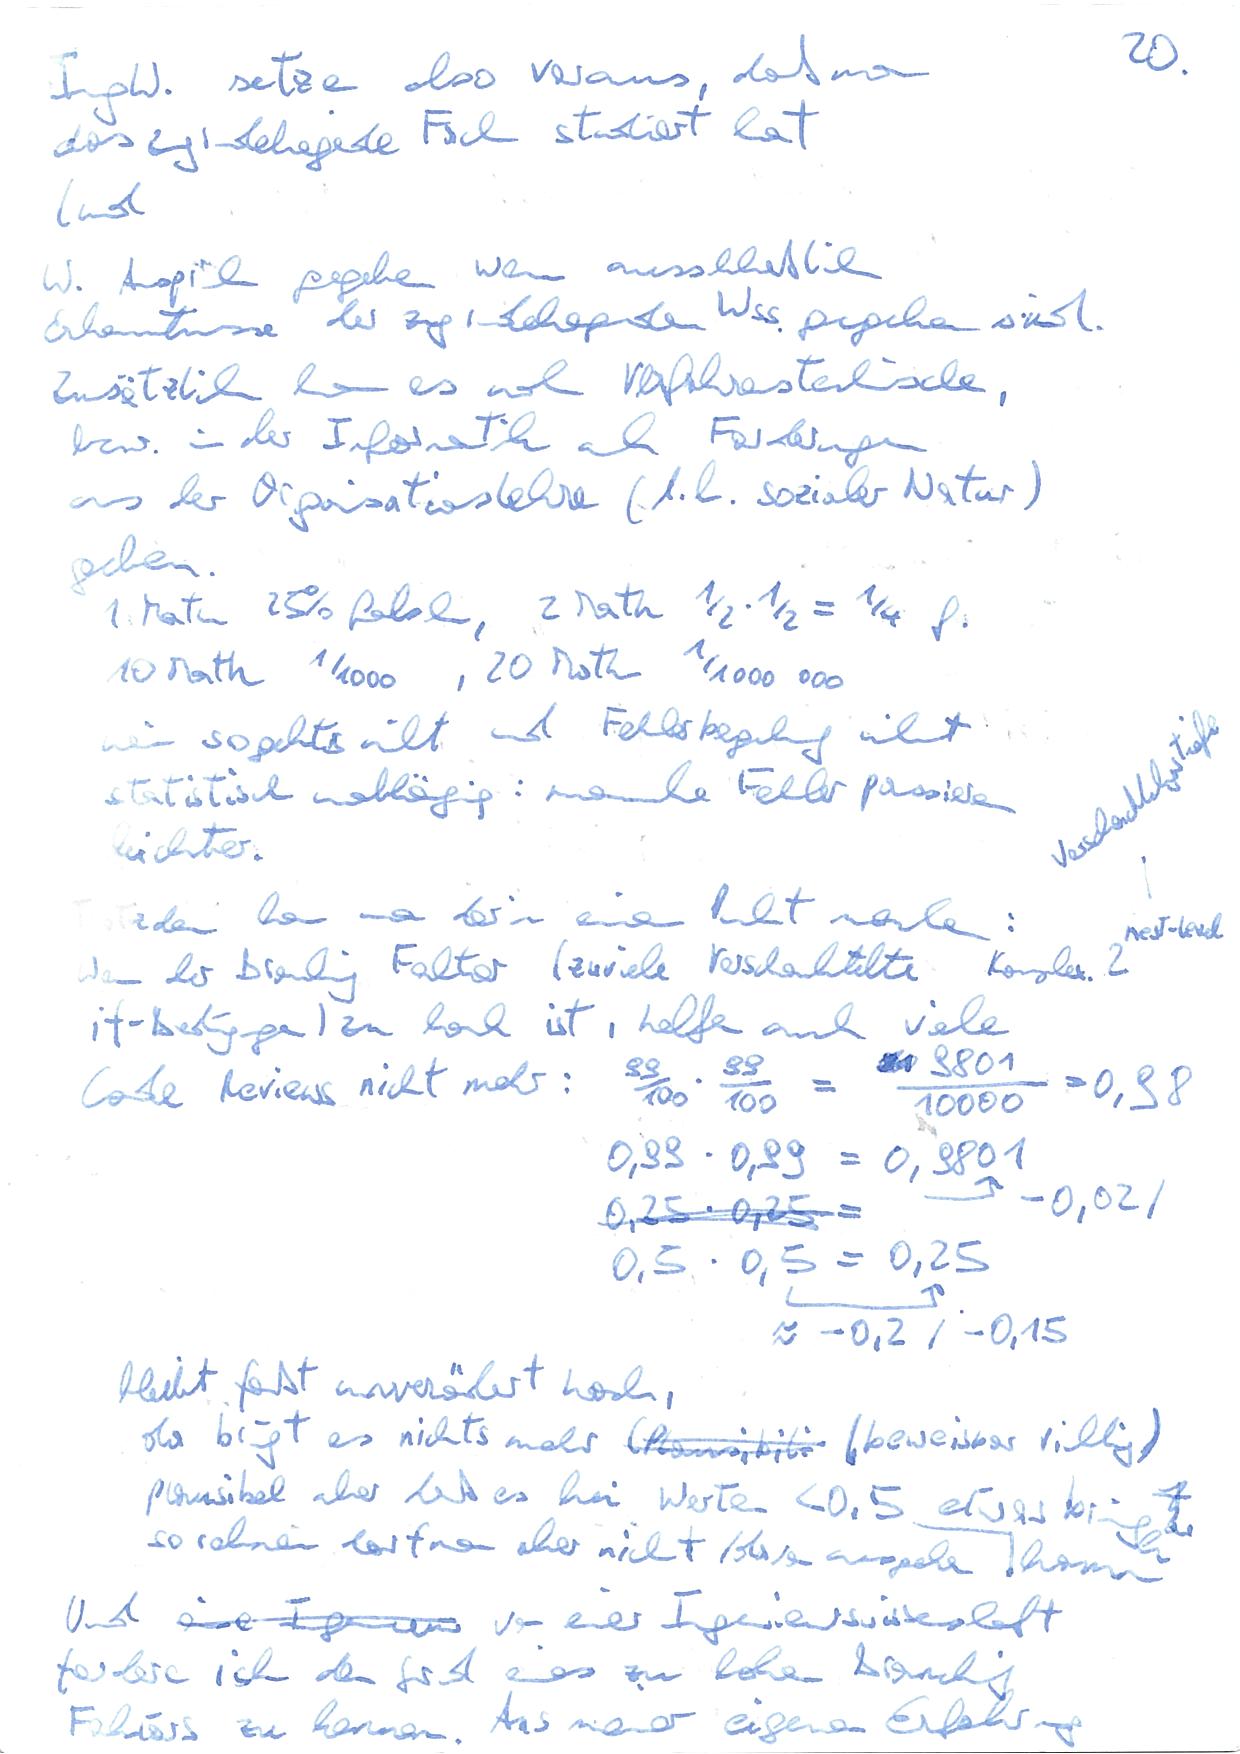 20.
IngW. setze also voraus, daß man
das zugrundeliegende Fach studiert hat
(und
W. Anspruch gegeben wenn ausschließlich
Erkenntnisse der zugrundeliegenden Wss. gegeben sind.
Zusätzlich kann es noch Verfahrenstechnische,
bzw. in der Informatik auch Forderungen
aus der Organisationslehre (d.h. sozialer Natur)
geben.
1 Math 25% falsch, 2 Math 1/2 · 1/2 = 1/4 f.
10 Math 1/1000 , 20 Math 1/1000 000
nein so gehts nicht und Fehlerbegehung nicht
statistisch unabhängig: manche Fehler passieren
leichter.
Trotzdem kann man darin einen Punkt machen:
Wenn der Branching Faktor (zuviele verschachtelte Komplex. 2^nest-level
Verschachtelungstiefe
if-Bedingungen) zu hoch ist, helfen auch viele
Code Reviews nicht mehr: 99/100 · 99/100 = 9801/10000 = 0,98
0,99 · 0,99 = 0,9801
-0,02 /
0,25 · 0,25 =
0,5 · 0,5 = 0,25
≈ -0,2 / -0,15
bleibt fast unverändert hoch,
da bringt es nichts mehr (beweisbar richtig)
plausibel aber daß es bei Werten <0,5 etwas bringen
so rechnen darf man aber nicht / davon ausgehen kann
Und von einer Ingenieurswissenschaft
fordere ich den Grund eines zu hohen Branching
Faktors zu kennen. Aus meiner eigenen Erfahrung